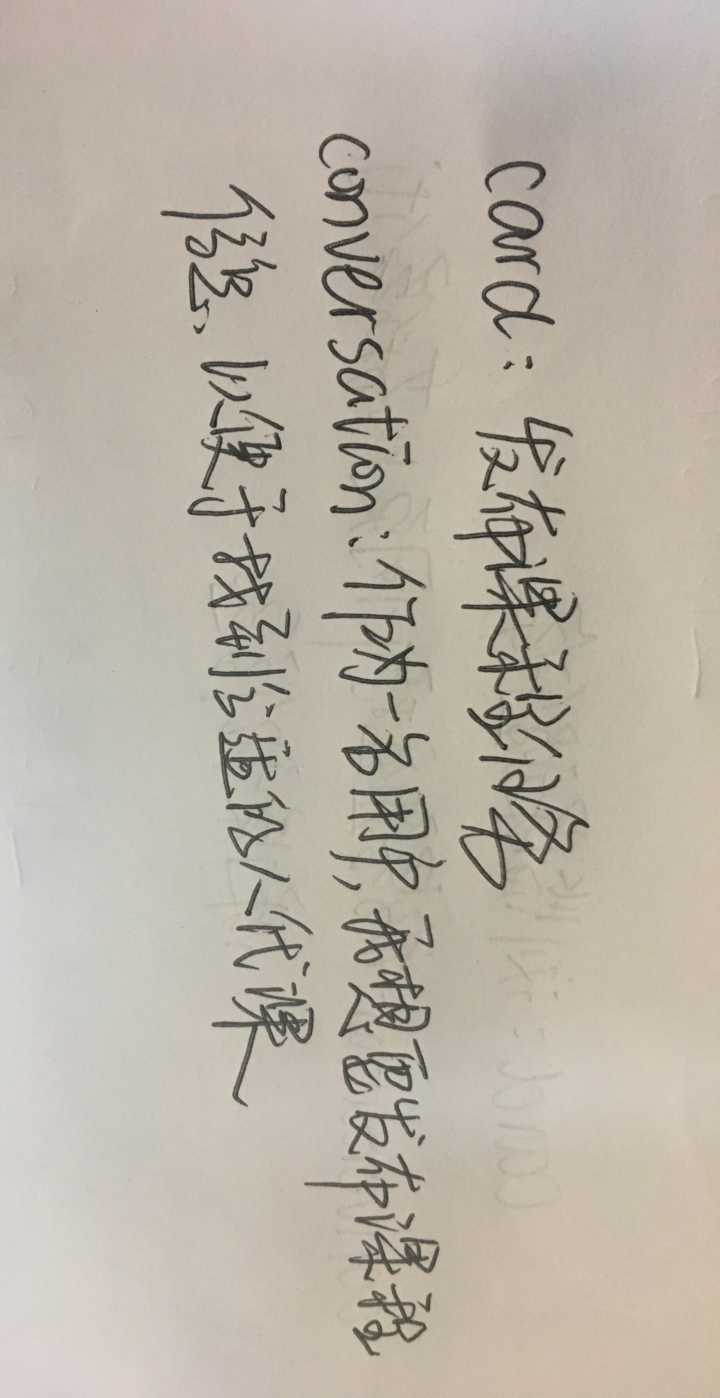 card：发布课程信息
conversation：作为一名用户，我想要发布课程
信息，以便于找到合适的人代课